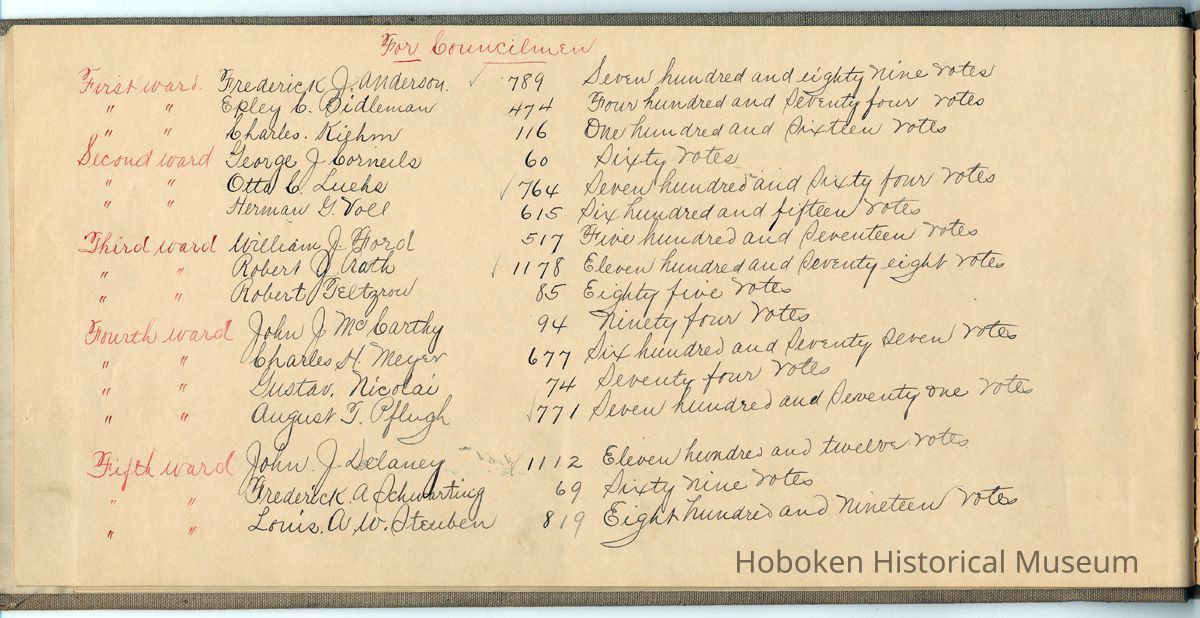 For Councilmen
First ward. Frederick J. Anderson. ✓ 789 Seven hundred and eighty nine votes
" " Epley C. Didleman 474 Four hundred and Seventy four votes
" " Charles. Kiehm 116 One hundred and Sixteen votes
Second ward George J Corneils 60 Sixty votes
" " Otto C. Luehs ✓ 764 Seven hundred and Sixty four votes
" " Herman G. Voll 615 Six hundred and fifteen votes
Third ward William J. Ford 517 Five hundred and Seventeen votes
" " Robert J Rath ✓ 1178 Eleven hundred and Seventy eight votes
" " Robert Teltzrow 85 Eighty five votes
Fourth ward John J. McCarthy 94 Ninety four votes
" " Charles H. Meyer 677 Six hundred and Seventy Seven votes
" " Gustav. Nicolai 74 Seventy four votes
" " August T. Pflugh ✓ 771 Seven hundred and Seventy one votes
Fifth ward John J Delaney 1112 Eleven hundred and twelve votes
" " Frederick A Schwarting 69 Sixty nine votes
" " Louis. A. W. Steuben 819 Eight hundred and Nineteen votes
Hoboken Historical Museum